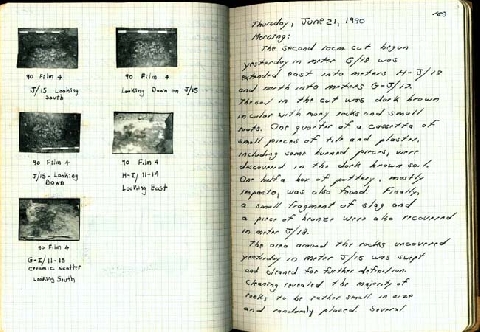 90 Film 4
J/15 Looking
South
90 Film 4
Looking Down on J/15
90 Film 4
J/15 - Looking
Down
90 Film 4
H-I/11-19
Looking East
90 Film 4
G-I/11-18
ceramic scatter
Looking South
Thursday, June 21, 1990
Morning:
The second room cut begun
yesterday in meter G/18 was
extended east into meters H-J/18
and north into meters G-J/17.
Throw in the cut was dark brown
in color with many rocks and small
roots. One quarter of a cassetta of
small pieces of tile and plaster,
including some burned pieces, were
discovered in the dark brown soil.
One half a box of pottery, mostly
impasto, was also found. Finally,
a small fragment of slag and
a piece of bronze were also recovered
in meter J/18.
The area around the rocks uncovered
yesterday in meter J/15 was swept
and cleaned for further definition.
Cleaning revealed the majority of
rocks to be rather small in size
and randomly placed. Several